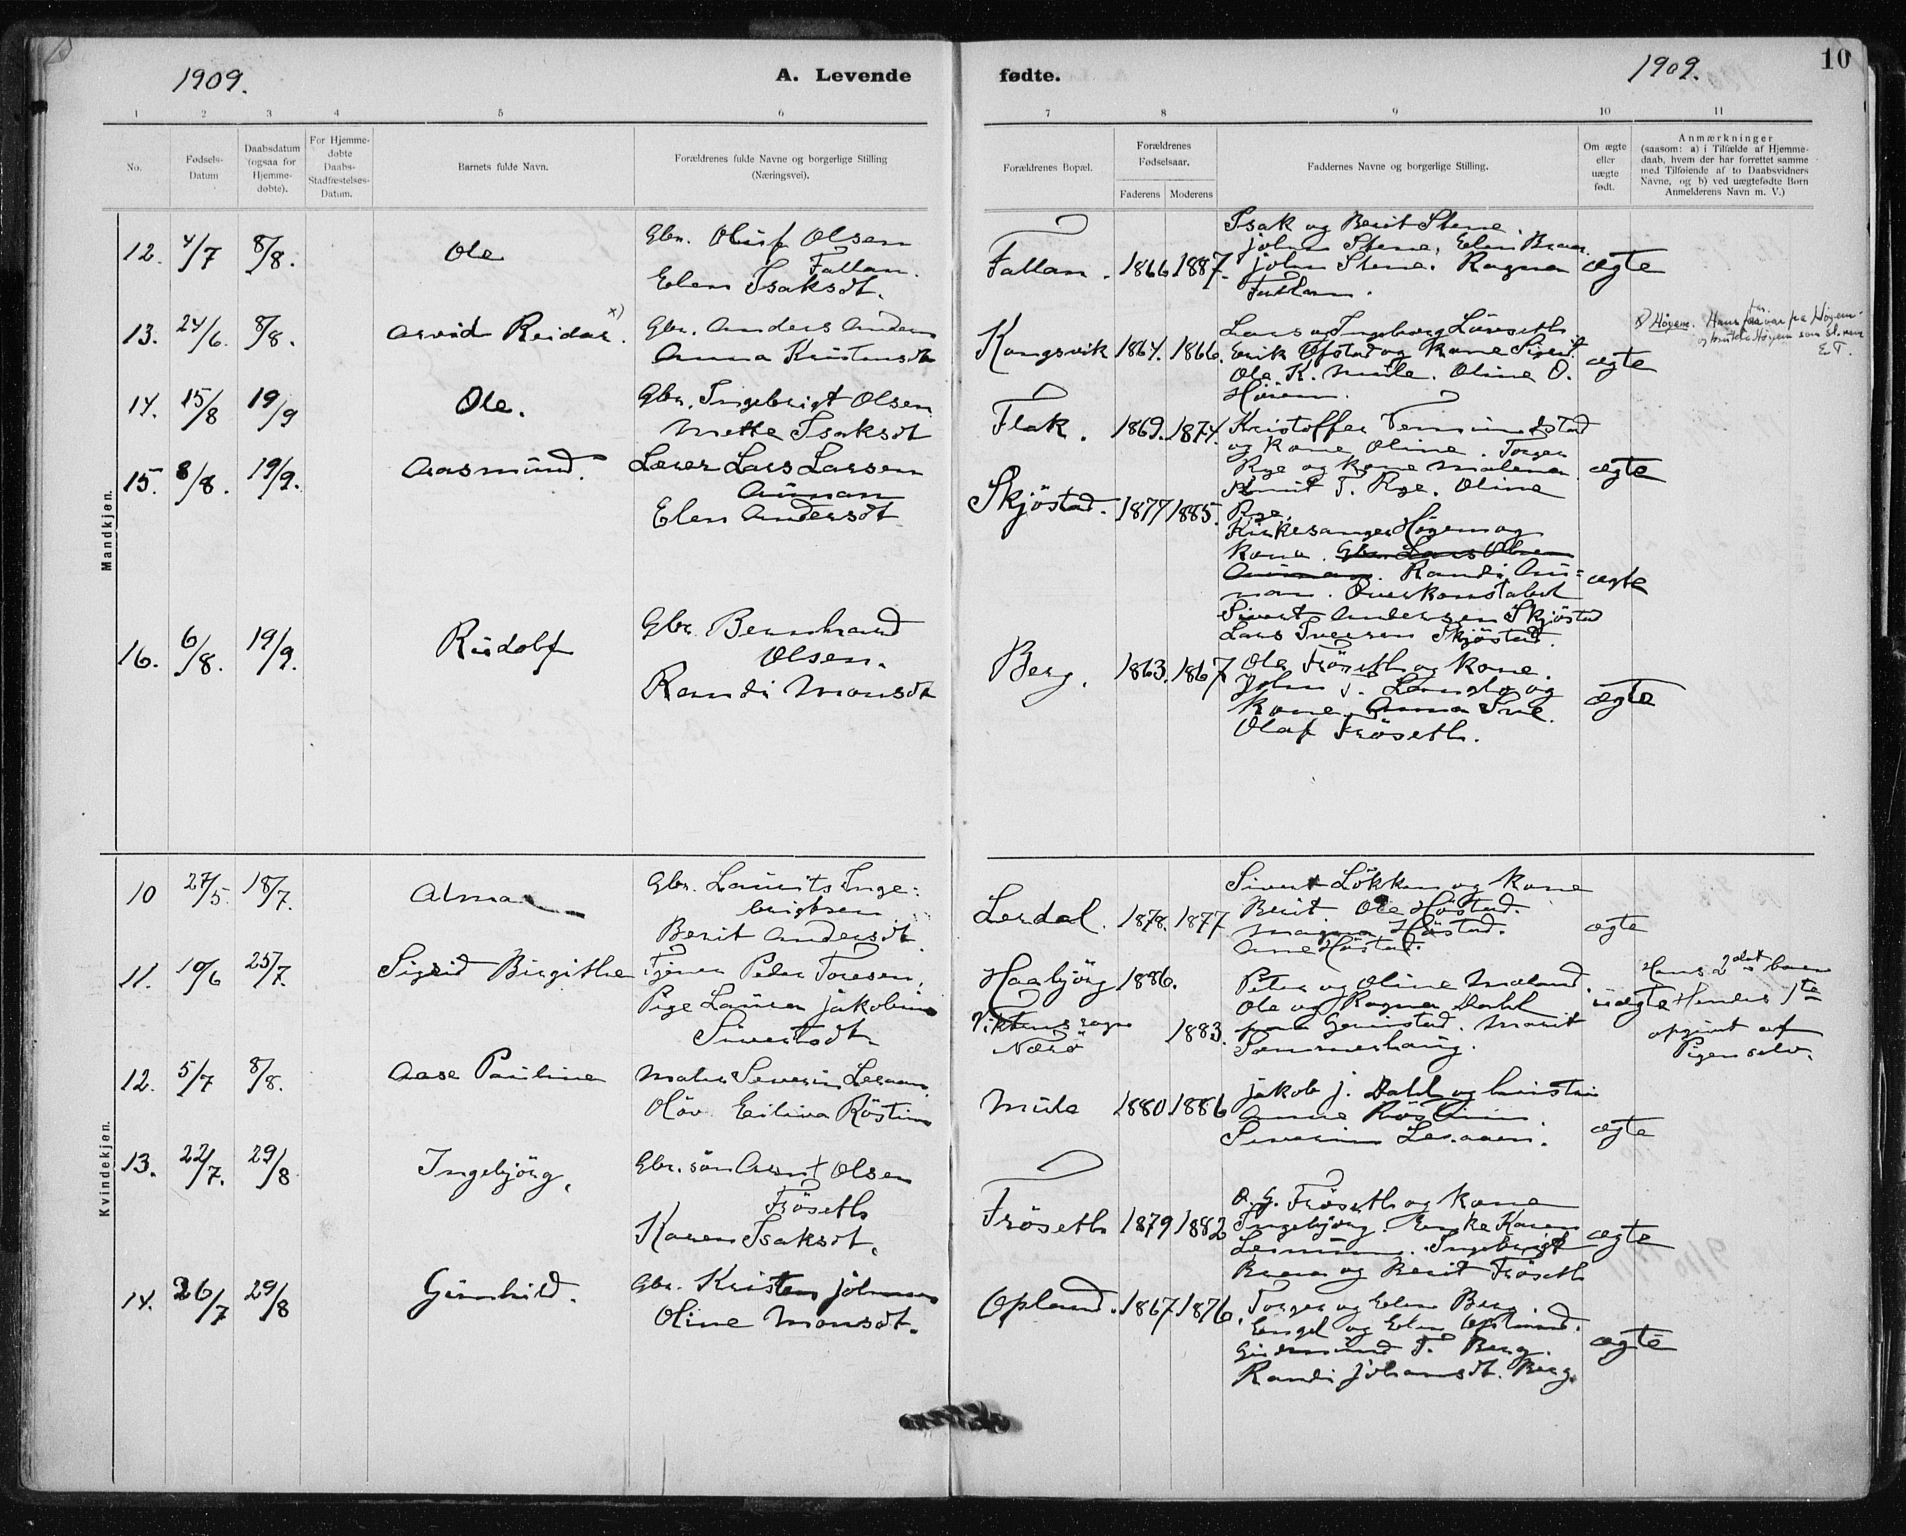 1909.
A. Levende
fødte.
1909.
10
1 2 3 4 5 6 7 8 9 10 11
No.
Fødsels-
Datum
Daabsdatum
(ogsaa for
Hjemme-
døbte).
For Hjemme-
døbte
Daabs-
Stadfæstelses-
Datum.
Barnets fulde Navn.
Forældrenes fulde Navne og borgerlige Stilling
(Næringsvei).
Forældrenes Bopæl.
Forældrenes
Fødselsaar.
Faderens
Moderens
Faddernes Navne og borgerlige Stilling.
Om ægte
eller
uægte
født.
Anmærkninger
(saasom: a) i Tilfælde af Hjemme-
daab, hvem der har forrettet samme
med Tilføiende af to Daabsvidners
Navne, og b) ved uægtefødte Børn
Anmelderens Navn m. V.)
Mandkjøn.
12. 4/7 8/8. Ole
Gbr. Oluf Olsen
Fallan.
Elen Isaksdt.
Fallan. 1866 1887.
Isak og Berit Stene.
John Stene. Elen
John Stene. Ragna
Fallan.
ægte
13. 24/6. 8/8. Arvid Reidar. x)
Gbr. Anders Anders
Anna Kristensdt
Kongsvik 1864. 1866.
Lars og Ingeborg Lövseth
Erik Ofstad og Kone Sigrid
Ole K. Mule. Oline O.
Höiem.
ægte
x) Høyem. Hans far var fra Høyem
E T.
14. 15/8 19/9 Ole.
Gbr. Ingebrigt Olsen
Mette Isaksdt
Flak. 1869. 1874.
Kristoffer
og Kone Oline. Torger
Rye og Kone Malena
T. Rye. Oline
Rye.
ægte
15. 8/8. 19/9. Aasmund.
Lærer Lars Larsen
Aunan
Elen Andersdt
Skjöstad. 1877 1885.
Kirkesanger Höyem og
Kone. Gbr. Lars Olsen
Aunan. Randi Au=
nan. Overkonstabel
Sivert Andersen Skjöstad
Lars Iversen Skjöstad.
ægte
16. 6/8. 19/9. Rudolf
Gbr. Bernhard
Olsen.
Randi Monsdt
Berg. 1863. 1867
Ole Fröseth og Kone.
John T. Langlo og
Kone. Anna
Olaf Fröseth.
ægte
Kvindekjøn.
10 27/5. 18/7. Alma
Gbr. Laurits Inge=
brigtsen
Berit Andersdt.
Lerdal. 1878. 1877
Sivert Lökken og Kone
Berit. Ole Höstad.
Magna Höstad.
Ane Höstad.
ægte
11. 10/6 25/7. Sigrid Birgithe
Tjener Peder Toresen,
Pige Laura Jakobine
Sivertsdt.
Haabjörg 1886.
Viktens sogn
Nærö 1883.
Peter og Oline Mæland.
Ole og Ragna Dahl
Gravnstad. Marit
Sommerhaug.
uægte
Hans 2det barn
Hendes 1te
opgivet af
Pigen selv.
12. 5/7 8/8. Aase Pauline
Maler Severin Leraan.
Olöv Eilina Röstum
Mule 1880 1886
Jakob J. Dahl og hustru
Anne Röstum.
Severin Leraaen.
ægte
13. 22/7. 29/8 Ingebjörg.
Gbr. sön Arnt Olsen
Fröseth
Karen Isaksdt.
Fröseth 1879 1882
O. G. Fröseth og Kone
Ingebjörg. Enke Karen
Ingebrigt
og Berit Fröseth
ægte
14. 26/7 29/8 Gunhild.
Gbr. Kristen Johnsen
Oline Monsdt.
Opland. 1867 1876.
Torger og Elen Berg
Engel og Elen Opland.
Gudmund T. Berg.
Randi Johansdt. Berg.
ægte